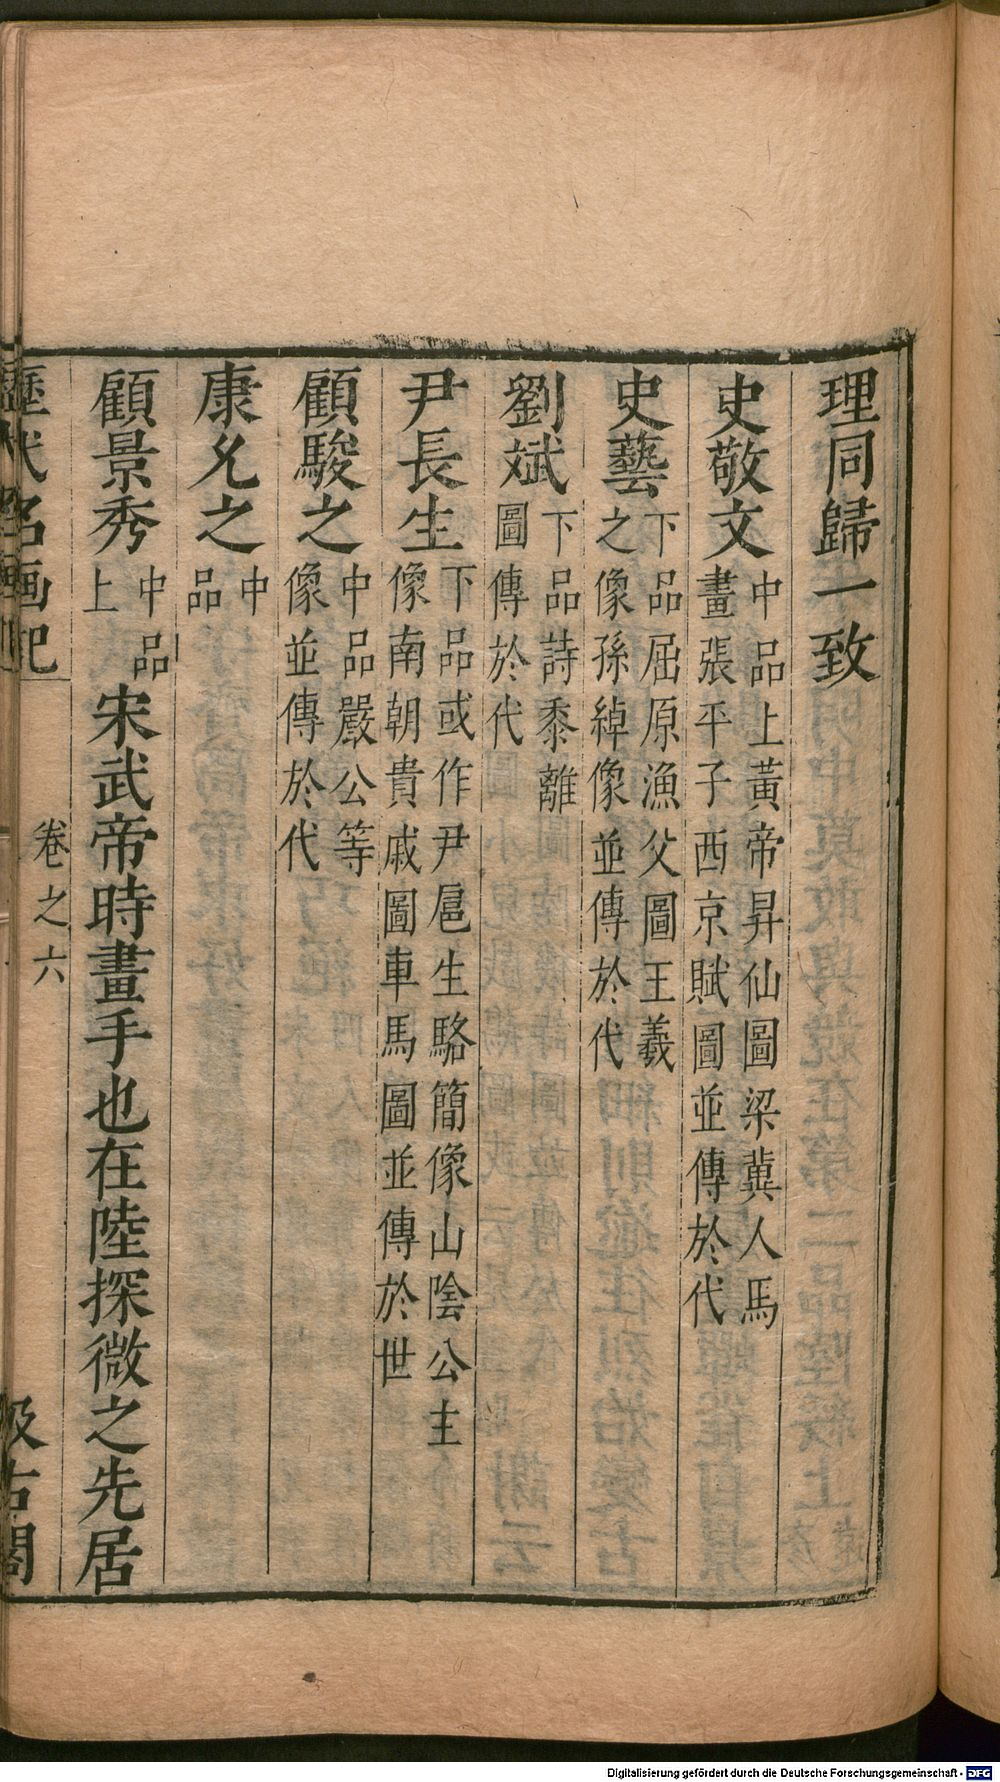 理同歸一致
史敬文中品上黃帝昇仙圖梁冀人馬
畫張平子西京賦圖並傳於代
史藝下品屈原漁父圖王羲
之像孫綽像並傳於代
劉斌下品詩黍離
圖傳於代
尹長生下品或作尹扈生駱簡像山陰公主
像南朝貴戚圖車馬圖並傳於世
顧駿之中品嚴公等
像並傳於代
康允之中
品
顧景秀中品
上
宋武帝時畫手也在陸探微之先居
歷代名画記
卷之六
汲古閣
Digitalisierung gefördert durch die Deutsche Forschungsgemeinschaft - DFG